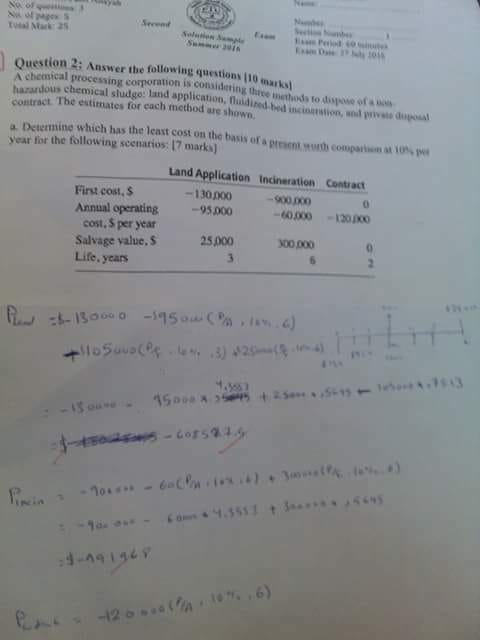 No. of questions: 3
No. of pages: 5
Total Mark: 25
Second Exam
Solution Sample
Summer 2016
Name:
Number:
Section Number: 1
Exam Period: 60 minutes
Exam Date: 17 July 2016
Question 2: Answer the following questions [10 marks]
A chemical processing corporation is considering three methods to dispose of a non-
hazardous chemical sludge: land application, fluidized-bed incineration, and private disposal
contract. The estimates for each method are shown.
a. Determine which has the least cost on the basis of a present worth comparison at 10% per
year for the following scenarios: [7 marks]
Land Application Incineration Contract
First cost, $ −130,000 −900,000 0
Annual operating −95,000 −60,000 −120,000
cost, $ per year
Salvage value, $ 25,000 300,000 0
Life, years 3 6 2
PLand = $-130000 -95000(P/A, 10%, 6)
-105000(P/F, 10%, 3) +25000(P/F, 10%, 6)
= -130000 - 95000 * 4.3553 + 25000 * .5645 - 105000 * .7513
= $ -608587.5
Pincin = -900000 - 60(P/A, 10%, 6) + 300000(P/F, 10%, 6)
= -900 000 - 60000 * 4.3553 + 300000 * .5645
= $-991968
= -120 000(P/A, 10%, 6)